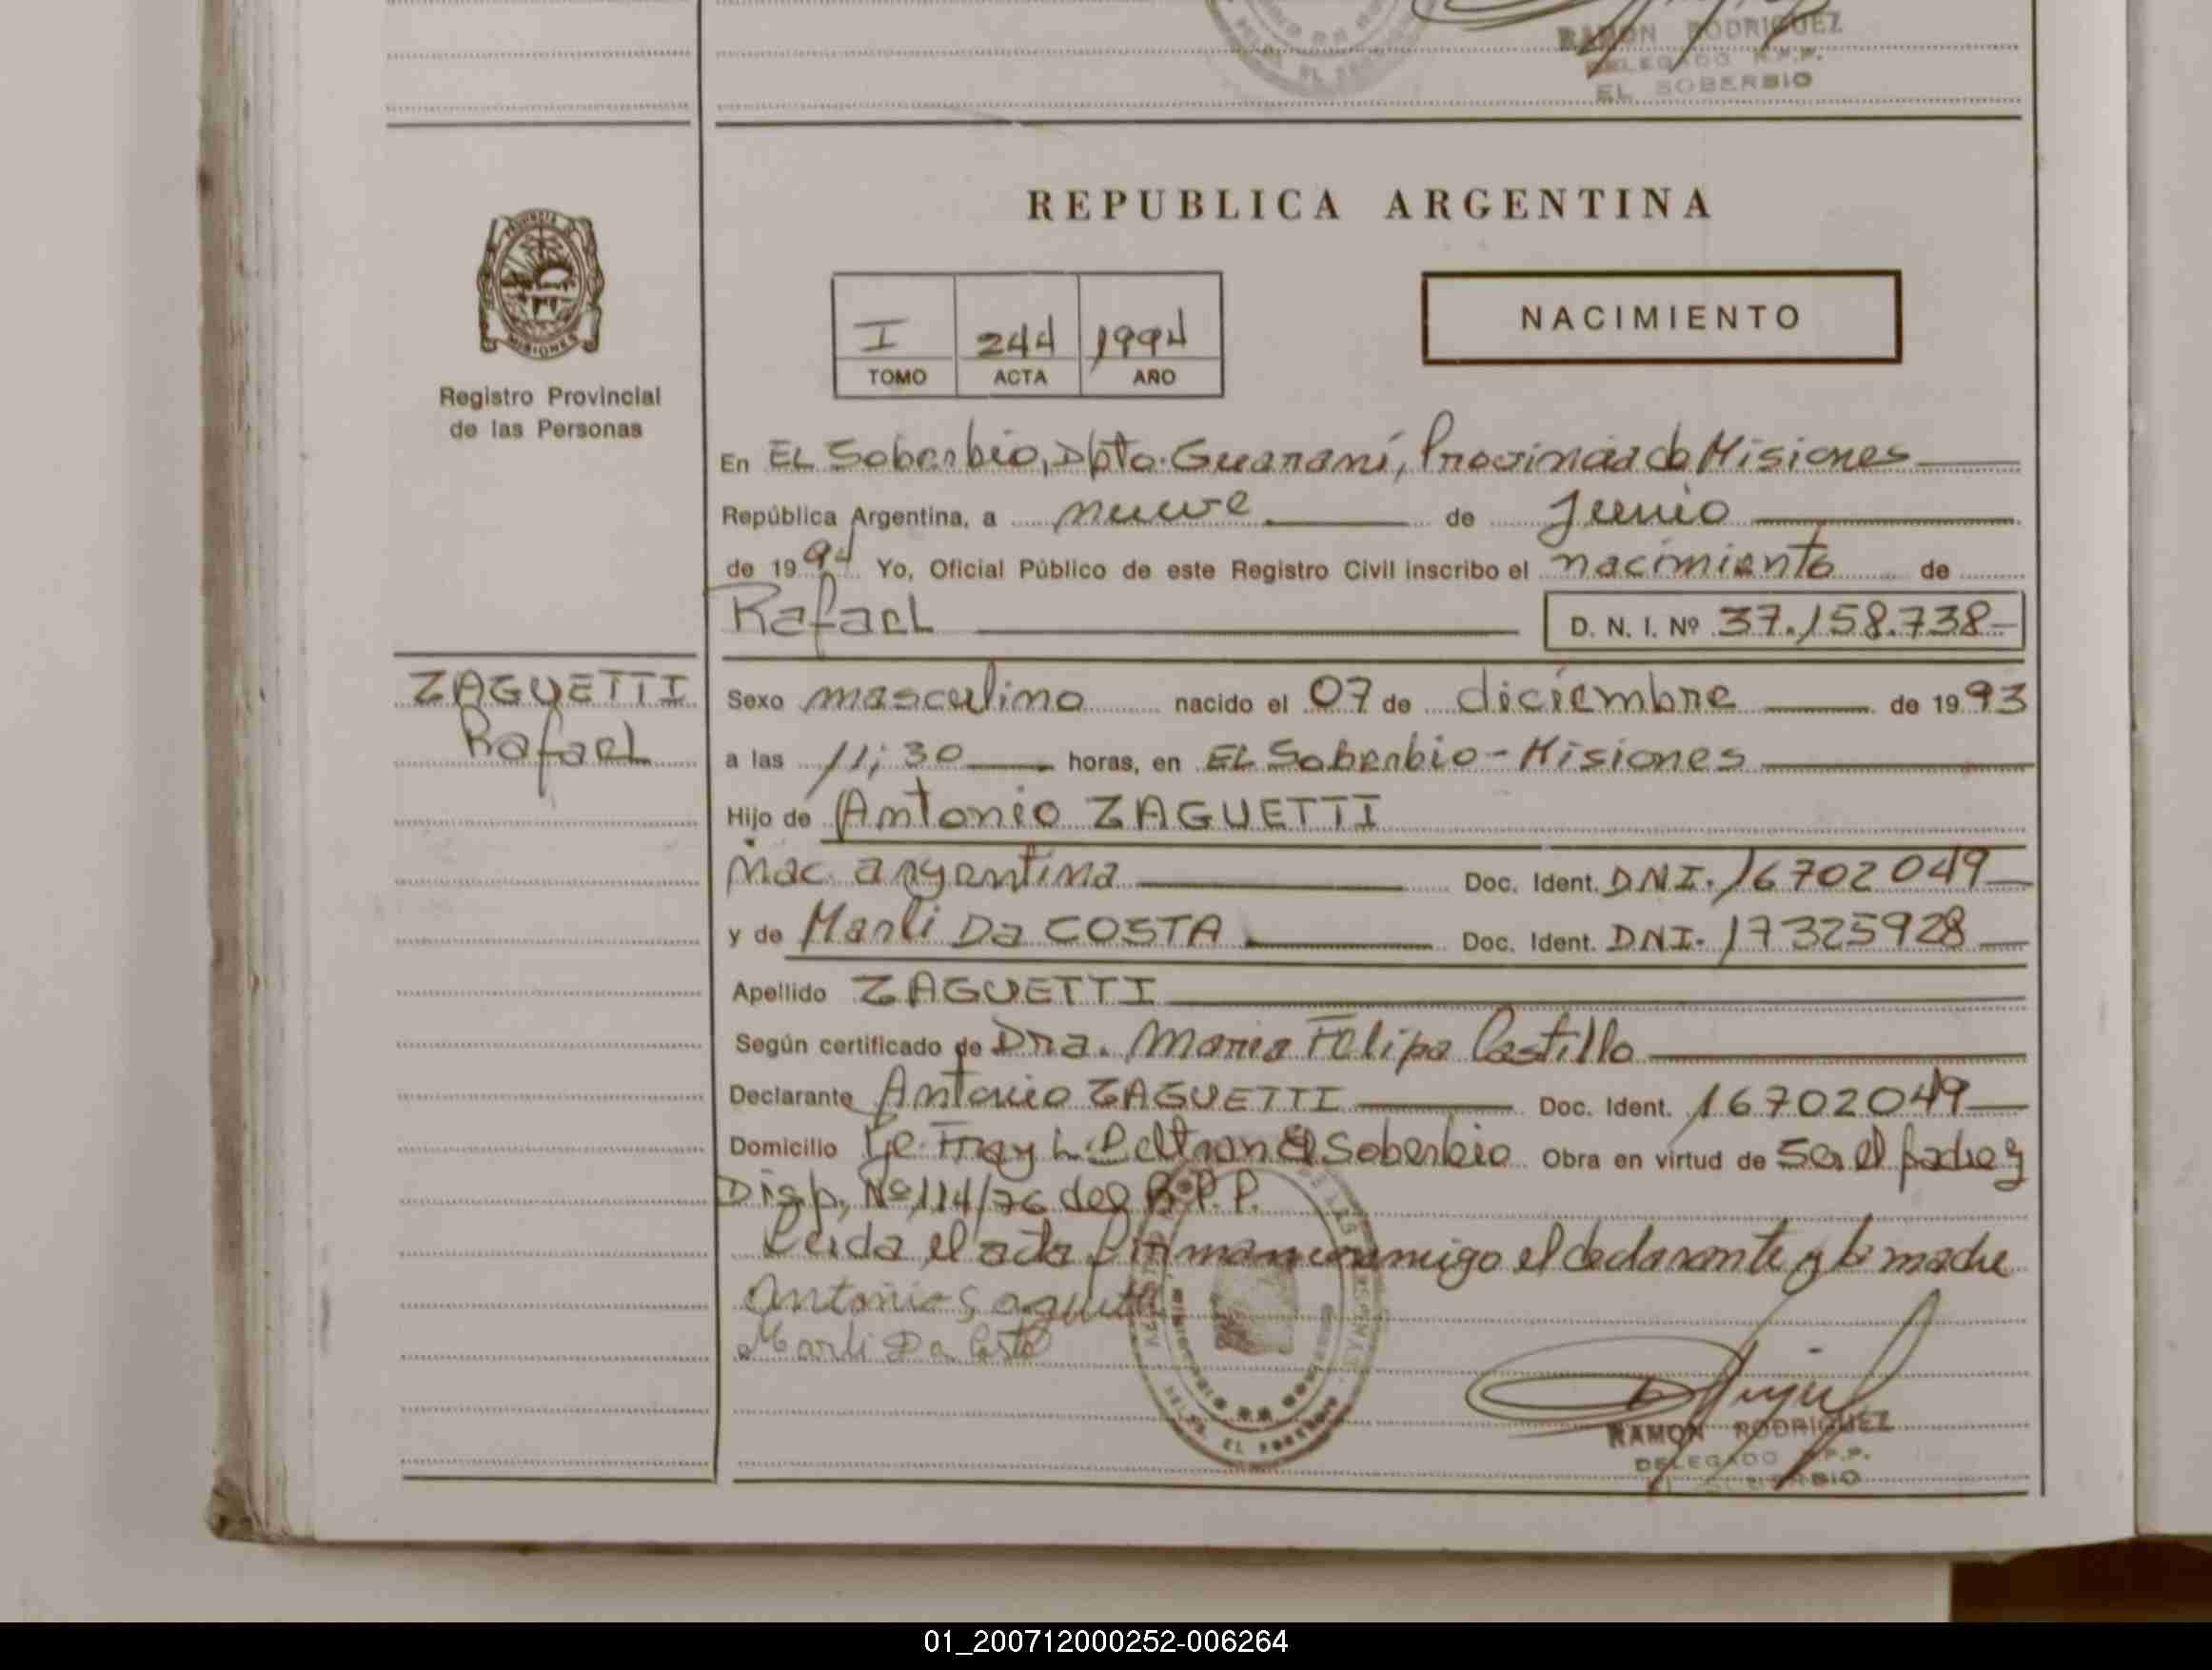 RAMON RODRIGUEZ
DELEGADO R.P.P.
EL SOBERBIO
REPUBLICA ARGENTINA
MISIONES
Registro Provincial
de las Personas
I 244 1994
TOMO ACTA AÑO
NACIMIENTO
En EL Soberbio, Dpto. Guaraní, Provincia de Misiones
República Argentina, a nueve de Junio
de 1994 Yo, Oficial Público de este Registro Civil inscribo el nacimiento de
Rafael D. N. I. Nº 37.158.738
ZAGUETTI
Rafael
Sexo masculino nacido el 07 de diciembre de 1993
a las 11;30 horas, en EL Soberbio - Misiones
Hijo de Antonio ZAGUETTI
Nac. argentina Doc. Ident. DNI. 16702049
y de Marli Da COSTA Doc. Ident. DNI. 17325928
Apellido ZAGUETTI
Según certificado de Dra. Maria Felipa Castillo
Declarante Antonio ZAGUETTI Doc. Ident. 16702049
Domicilio Fray L. Beltran El Soberbio Obra en virtud de Ser el padre y
Disp, Nº 114/76 del R.P.P.
Leida el acta firman conmigo el declarante y la madre
Antonio Saguetti
Marli Da Costa
RAMON RODRIGUEZ
DELEGADO R.P.P.
EL SOBERBIO
01_200712000252-006264